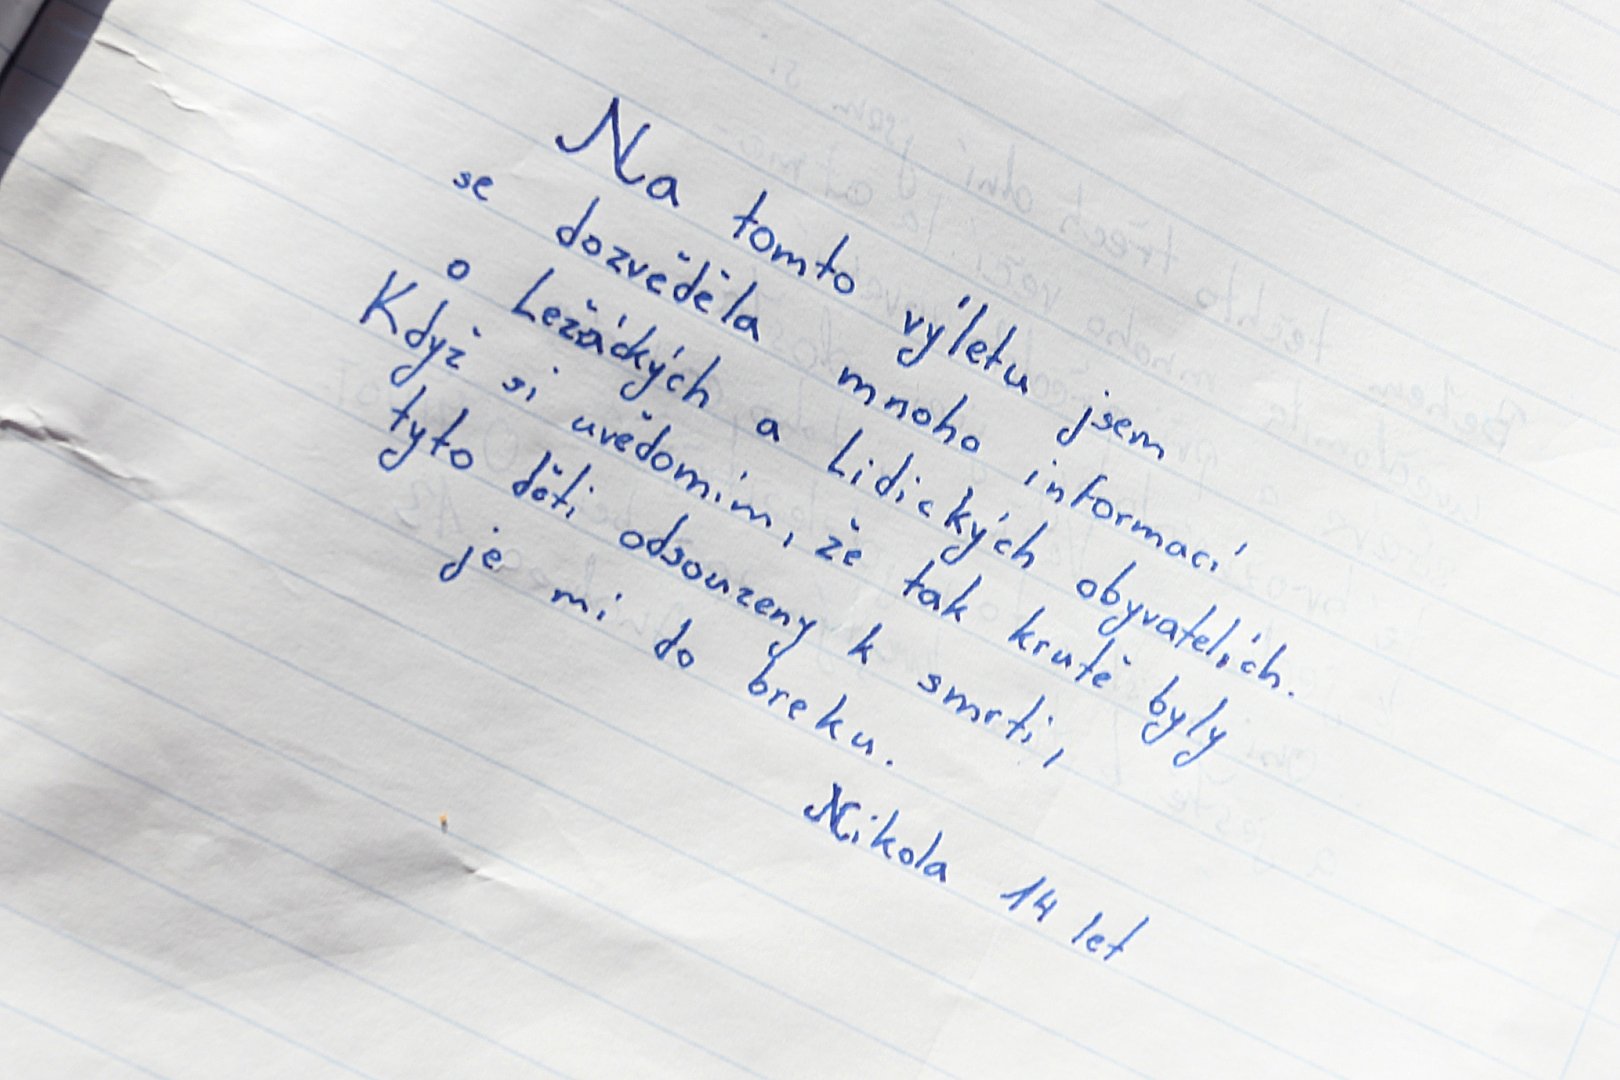 Na tomto výletu jsem
se dozvěděla mnoho informací
o Ležáckých a Lidických obyvatelích.
Když si uvědomím, že tak krutě byly
tyto děti odsouzeny k smrti,
je mi do breku.
Nikola 14 let